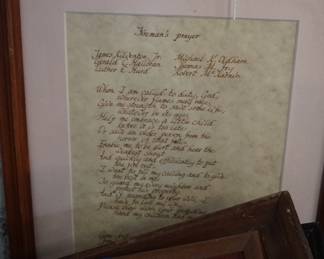 Fireman's prayer
James Kilgenton, Jr. Michael K.
Gerald C. Hallihan Thomas
Luther E. Hurd Robert
When I am called to duty, God,
wherever flames may rage,
Give me strength to save some life,
whatever be its age.
Help me embrace a little child
before it is too late,
Or save an older person from the
horror of that fate.
Enable me to be alert and hear the
weakest shout
And quickly and efficiently to put
the fire out.
I want to fill my calling and to give
the best in me,
To guard my every neighbor and
protect his property.
And if according to your will I
have to lose my life,
Please bless with your protecting
hand my children and